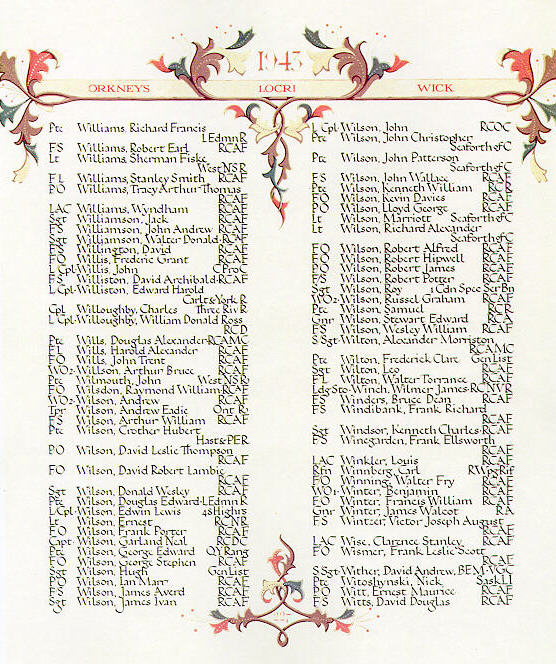 1943
ORKNEYS LOCRI WICK
Pte Williams, Richard Francis
LEdmnR
FS Williams, Robert Earl RCAF
Lt Williams, Sherman Fiske
WestNSR
FL Williams, Stanley Smith RCAF
PO Williams, Tracy Arthur Thomas
RCAF
LAC Williams, Wyndham RCAF
Sgt Williamson, Jack RCAF
FS Williamson, John Andrew RCAF
Sgt Williamson, Walter Donald RCAF
FS Willington, David RCAF
FO Willis, Frederic Grant RCAF
LCpl Willis, John CProC
FS Williston, David Archibald RCAF
LCpl Williston, Edward Harold
Carlt&YorkR
Cpl Willoughby, Charles ThreeRivR
LCpl Willoughby, William Donald Ross
RCD
Pte Wills, Douglas Alexander RCAMC
FL Wills, Harold Alexander RCAF
FO Wills, John Trent RCAF
WO2 Willson, Arthur Bruce RCAF
Pte Wilmouth, John WestNSR
FO Wilsdon, Raymond William RCAF
WO2 Wilson, Andrew RCAF
Tpr Wilson, Andrew Eadie OntR
FS Wilson, Arthur William RCAF
Pte Wilson, Crother Hubert
Hast&PER
PO Wilson, David Leslie Thompson
RCAF
FO Wilson, David Robert Lambie
RCAF
Sgt Wilson, Donald Wesley RCAF
Pte Wilson, Douglas Edward LEdmnR
LCpl Wilson, Edwin Lewis 48Highrs
Lt Wilson, Ernest RCNR
FO Wilson, Frank Porter RCAF
Capt Wilson, Garland Neal RCDC
Pte Wilson, George Edward QYRang
FO Wilson, George Stephen RCAF
Sgt Wilson, Hugh GenList
PO Wilson, Ian Marr RCAF
FS Wilson, James Averd RCAF
Sgt Wilson, James Ivan RCAF
LCpl Wilson, John RCOC
Pte Wilson, John Christopher
SeaforthofC
Pte Wilson, John Patterson
SeaforthofC
FS Wilson, John Wallace RCAF
Pte Wilson, Kenneth William RCR
FO Wilson, Kevin Davies RCAF
PO Wilson, Lloyd George RCAF
Lt Wilson, Marriott SeaforthofC
Lt Wilson, Richard Alexander
SeaforthofC
FO Wilson, Robert Alfred RCAF
FO Wilson, Robert Hipwell RCAF
PO Wilson, Robert James RCAF
F/S Wilson, Robert Potter RCAF
Sgt Wilson, Roy 1 Cdn Spec Ser Bn
WO2 Wilson, Russel Graham RCAF
Pte Wilson, Samuel RCR
Gnr Wilson, Stewart Edward RCA
FS Wilson, Wesley William RCAF
SSgt Wilton, Alexander Morriston
RCAMC
Pte Wilton, Frederick Clare GenList
Sgt Wilton, Leo RCAF
FL Wilton, Walter Torrance RCAF
LdgSto Winch, Wilmer James RCNVR
FS Winders, Bruce Dean RCAF
FS Windibank, Frank Richard
RCAF
Sgt Windsor, Kenneth Charles RCAF
FS Winegarden, Frank Ellsworth
RCAF
LAC Winkler, Louis RCAF
Rfn Winnberg, Carl RWpgRif
FO Winning, Walter Fry RCAF
WO1 Winter, Benjamin RCAF
FO Winter, Francis William RCAF
Gnr Winter, James Walcot RA
FS Wintzer, Victor Joseph August
RCAF
LAC Wise, Clarence Stanley RCAF
FO Wismer, Frank Leslie Scott
RCAF
SSgt Wither, David Andrew, BEM VGC
Pte Witoshynski, Nick SaskLI
PO Witt, Ernest Maurice RCAF
FS Witts, David Douglas RCAF